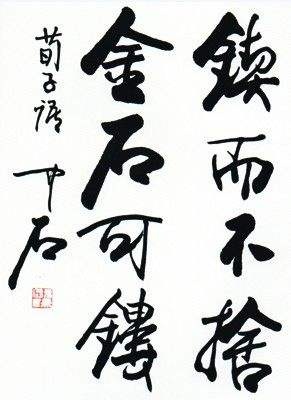 鍥而不捨
金石可鏤
荀子語 中石